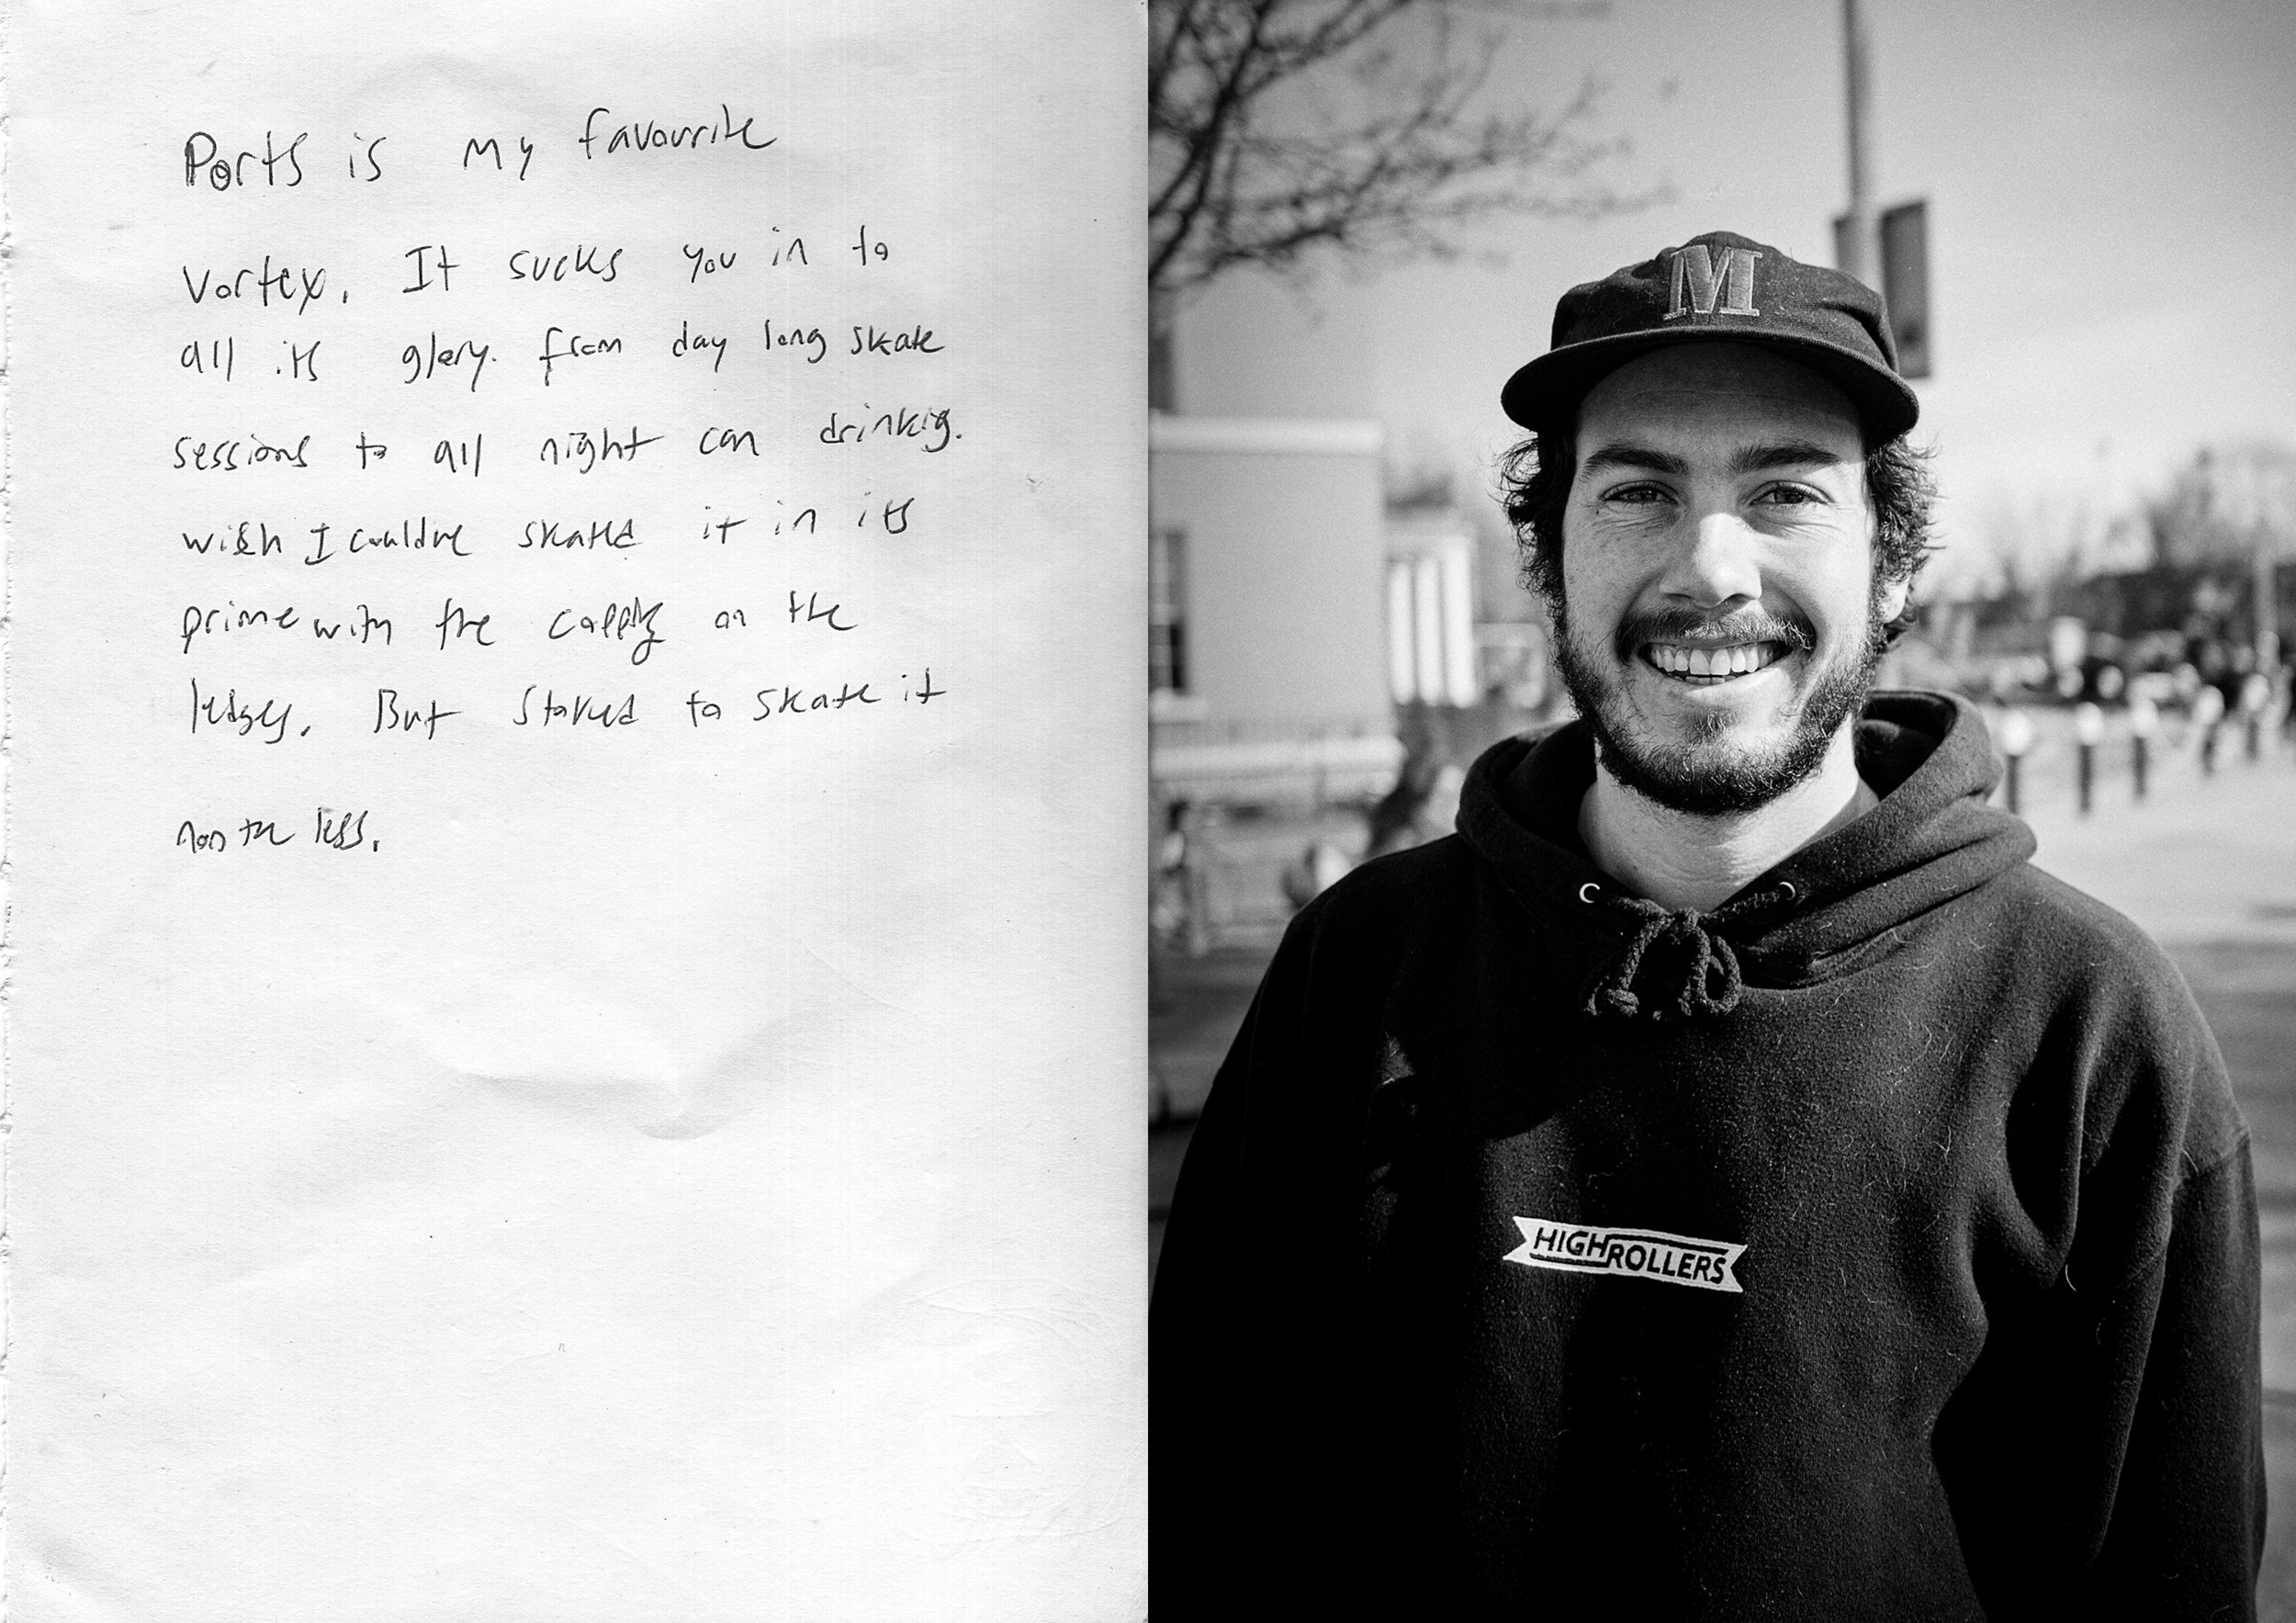 Ports is my favourite
Vortex. It sucks you in to
all its glory. from day long skate
sessions to all night can drinkig.
wish I couldve skated it in its
prime with the on the
ledges. But Stoked to skate it
non the less.
M
HIGHROLLERS